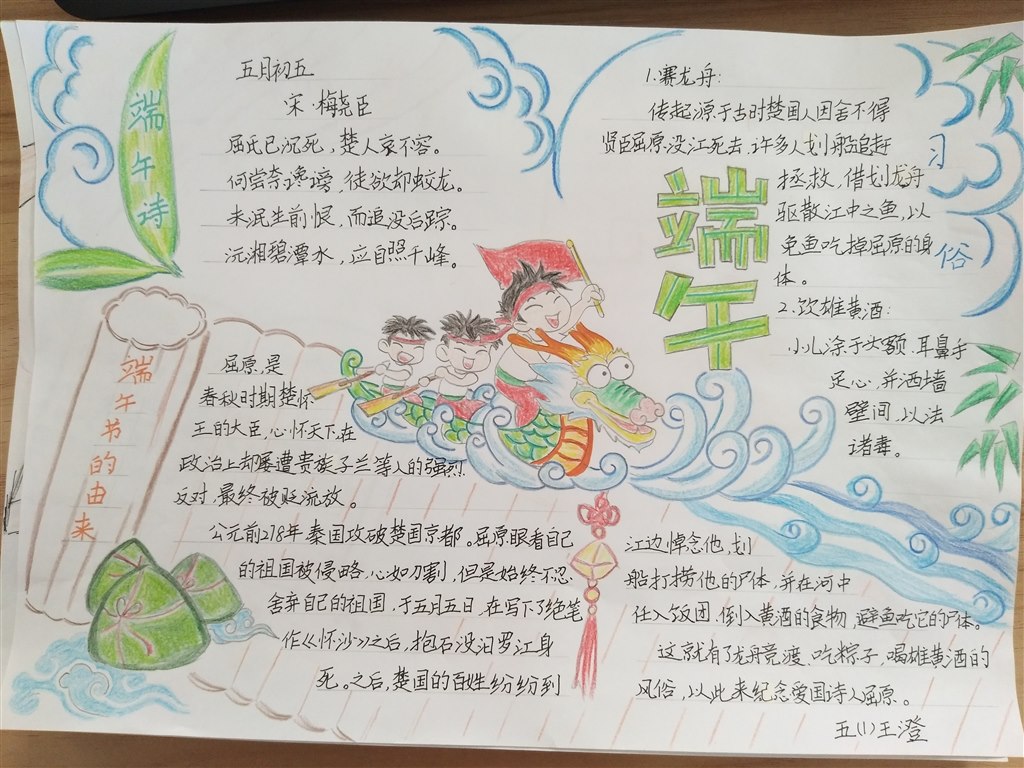 端午诗
五月初五
宋·梅尧臣
屈氏已沉死，楚人哀不容。
何尝奈谗谤，徒欲却蛟龙。
未泯生前恨，而追没后踪。
沅湘碧潭水，应自照千峰。
端午
习俗
1.赛龙舟：
传起源于古时楚国人因舍不得
贤臣屈原没江死去，许多人划船追赶
拯救，借划龙舟
驱散江中之鱼，以
免鱼吃掉屈原的身
体。
2.饮雄黄酒：
小儿涂于头额、耳鼻手
足心，并洒墙
壁间，以法
诸毒。
端午节的由来
屈原，是
春秋时期楚怀
王的大臣，心怀天下，在
政治上却屡遭贵族子兰等人的强烈
反对，最终被贬流放。
公元前278年秦国攻破楚国京都。屈原眼看自己
的祖国被侵略，心如刀割，但是始终不忍
舍弃自己的祖国，于五月五日，在写下了绝笔
作《怀沙》之后，抱石没汨罗江身
死。之后，楚国的百姓纷纷到
江边悼念他，划
船打捞他的尸体，并在河中
任入饭团、倒入黄酒的食物，避鱼吃它的尸体。
这就有了龙舟竞渡、吃粽子，喝雄黄酒的
风俗，以此来纪念爱国诗人屈原。
五(1)王澄